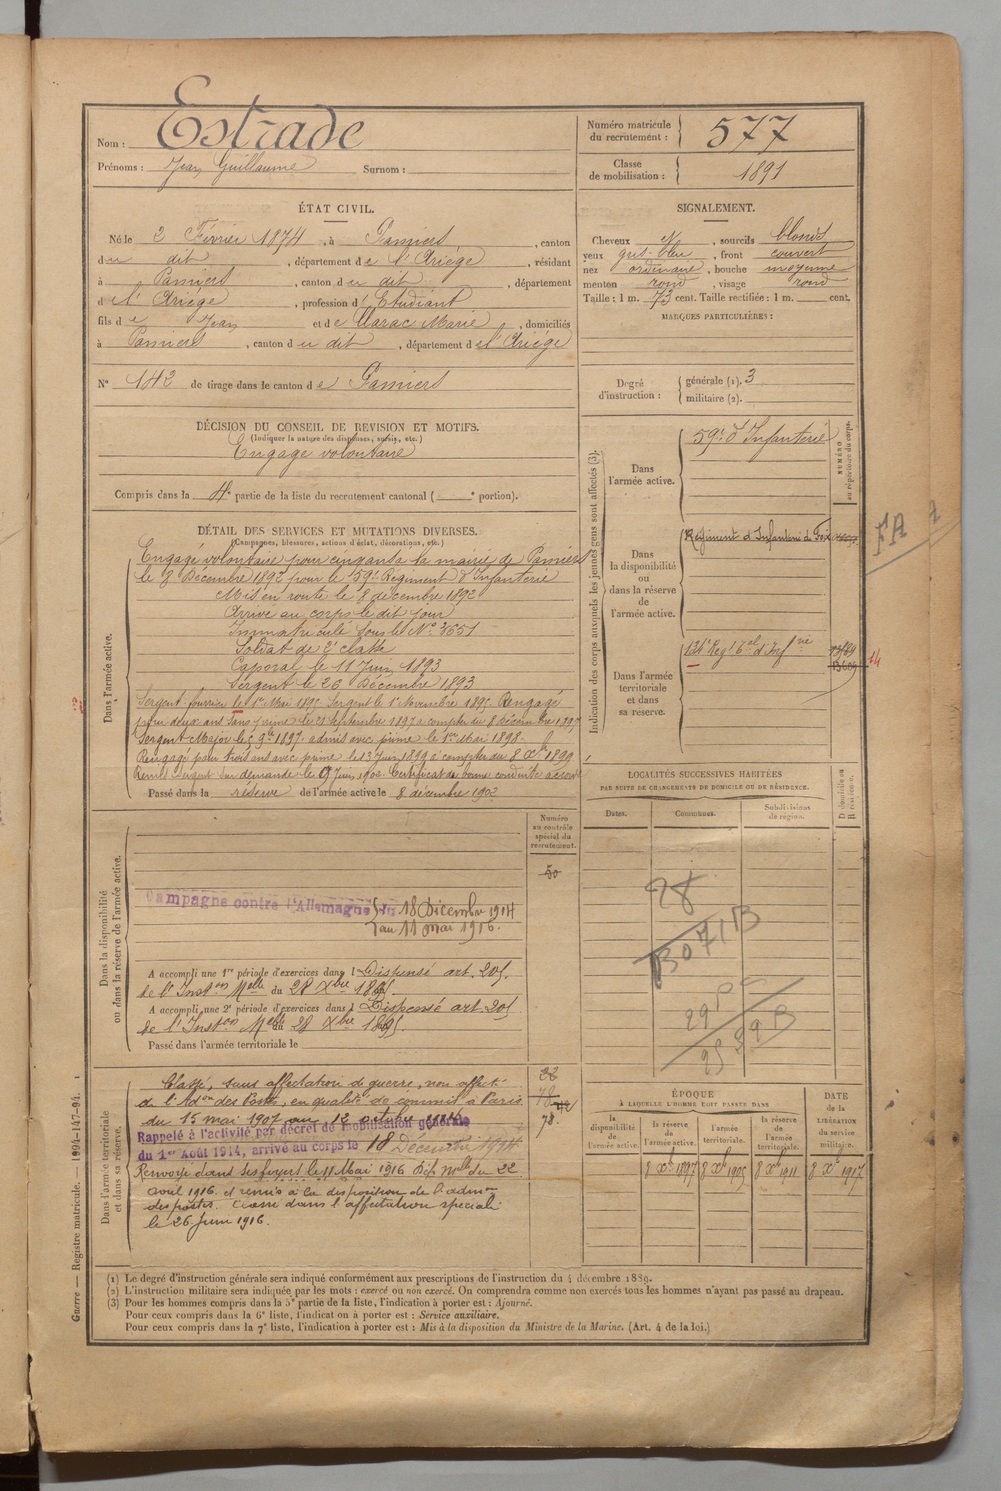 Nom : Estrade
Prénoms : Jean Guillaume Surnom :
Numéro matricule du recrutement : 577
Classe de mobilisation : 1891
ÉTAT CIVIL.
Né le 2 Février 1874, à Pamiers, canton
du dit, département de l'Ariège, résidant
à Pamiers, canton du dit, département
de l'Ariège, profession d'Etudiant
fils de Jean et de Marie, domiciliés
à Pamiers, canton du dit, département de l'Ariège
N° 142 de tirage dans le canton de Pamiers
SIGNALEMENT.
Cheveux , sourcils blonds
yeux gris-bleu, front couvert
nez ordinaire, bouche moyenne
menton rond, visage rond
Taille : 1 m. 73 cent. Taille rectifiée : 1 m. cent.
MARQUES PARTICULIÈRES :
Degré d'instruction : générale (1). 3
militaire (2).
DÉCISION DU CONSEIL DE REVISION ET MOTIFS.
(Indiquer la nature des dispenses, sursis, etc.)
Engagé volontaire
Compris dans la 4e partie de la liste du recrutement cantonal ( e portion).
DÉTAIL DES SERVICES ET MUTATIONS DIVERSES.
(Campagnes, blessures, actions d'éclat, décorations, etc.)
Dans l'armée active.
Engagé volontaire pour cinq ans à la mairie de Pamiers
le 8 Décembre 1892 pour le 59e Régiment d'Infanterie
Mis en route le 8 décembre 1892
Arrivé au corps le dit jour
Immatriculé sous le N° 3651
Soldat de 2e classe
Caporal le 11 Juin 1893
Sergent le 26 Décembre 1893
Sergent fourrier le 1er Mai 1895 Sergent le 1er Novembre 1895 Rengagé
pour deux ans sans prime le 23 septembre 1897 à compter du 8 décembre 1897
Sergent Major le 1897. admis avec prime le 1er Mai 1898.
Rengagé pour trois ans avec prime le 13 Juin 1899 à compter du 8 Xbre 1899
Remis Sergent sur demande le 9 Juin 1902. Certificat de bonne conduite accordé
Passé dans la réserve de l'armée active le 8 décembre 1902
Indication des corps auxquels les jeunes gens sont affectés (3).
NUMÉRO au répertoire du corps.
Dans l'armée active.
59e d'Infanterie
Dans la disponibilité ou dans la réserve de l'armée active.
Régiment d'Infanterie de Foix
Dans l'armée territoriale et dans sa réserve.
Regt Tal d'Infrie
14
FA
LOCALITÉS SUCCESSIVES HABITÉES
PAR SUITE DE CHANGEMENTS DE DOMICILE OU DE RÉSIDENCE.
Dates. Communes. Subdivisions de région. D domicile ou R résidence.
28
Dans la disponibilité ou dans la réserve de l'armée active.
Numéro au contrôle spécial du recrutement.
50
Campagne contre l'Allemagne du 18 Décembre 1914
au 11 mai 1916.
A accompli une 1re période d'exercices dans l Dispensé art. 205
de l'Inston Melle du 28 Xbre 1895
A accompli une 2e période d'exercices dans l Dispensé art. 205
de l'Inston Melle du 28 Xbre 1895
Passé dans l'armée territoriale le
Dans l'armée territoriale et dans sa réserve.
Classé, sans affectation de guerre, non affecté
de l'Adon des Postes, en qualité de commis à Paris
du 15 mai 1907 au 12 octobre
Rappelé à l'activité par décret de mobilisation générale
du 1er Août 1914, arrivé au corps le 18 Décembre 1914
Renvoyé dans ses foyers le 11 Mai 1916 Dép. Mlle du 22
avril 1916. et remis à la disposition de l'admon
des postes. Classé dans l'affectation spéciale
le 26 Juin 1916.
ÉPOQUE À LAQUELLE L'HOMME DOIT PASSER DANS
la disponibilité de l'armée active. la réserve de l'armée active. l'armée territoriale. la réserve de l'armée territoriale.
DATE de la LIBÉRATION du service militaire.
8 Xe 1897 8 Xe 1905 8 Xe 1911 8 Xe 1917
(1) Le degré d'instruction générale sera indiqué conformément aux prescriptions de l'instruction du 4 décembre 1889.
(2) L'instruction militaire sera indiquée par les mots : exercé ou non exercé. On comprendra comme non exercés tous les hommes n'ayant pas passé au drapeau.
(3) Pour les hommes compris dans la 5e partie de la liste, l'indication à porter est : Ajourné.
Pour ceux compris dans la 6e liste, l'indication à porter est : Service auxiliaire.
Pour ceux compris dans la 7e liste, l'indication à porter est : Mis à la disposition du Ministre de la Marine. (Art. 4 de la loi.)
Guerre — Registre matricule. — 1894-147-94.